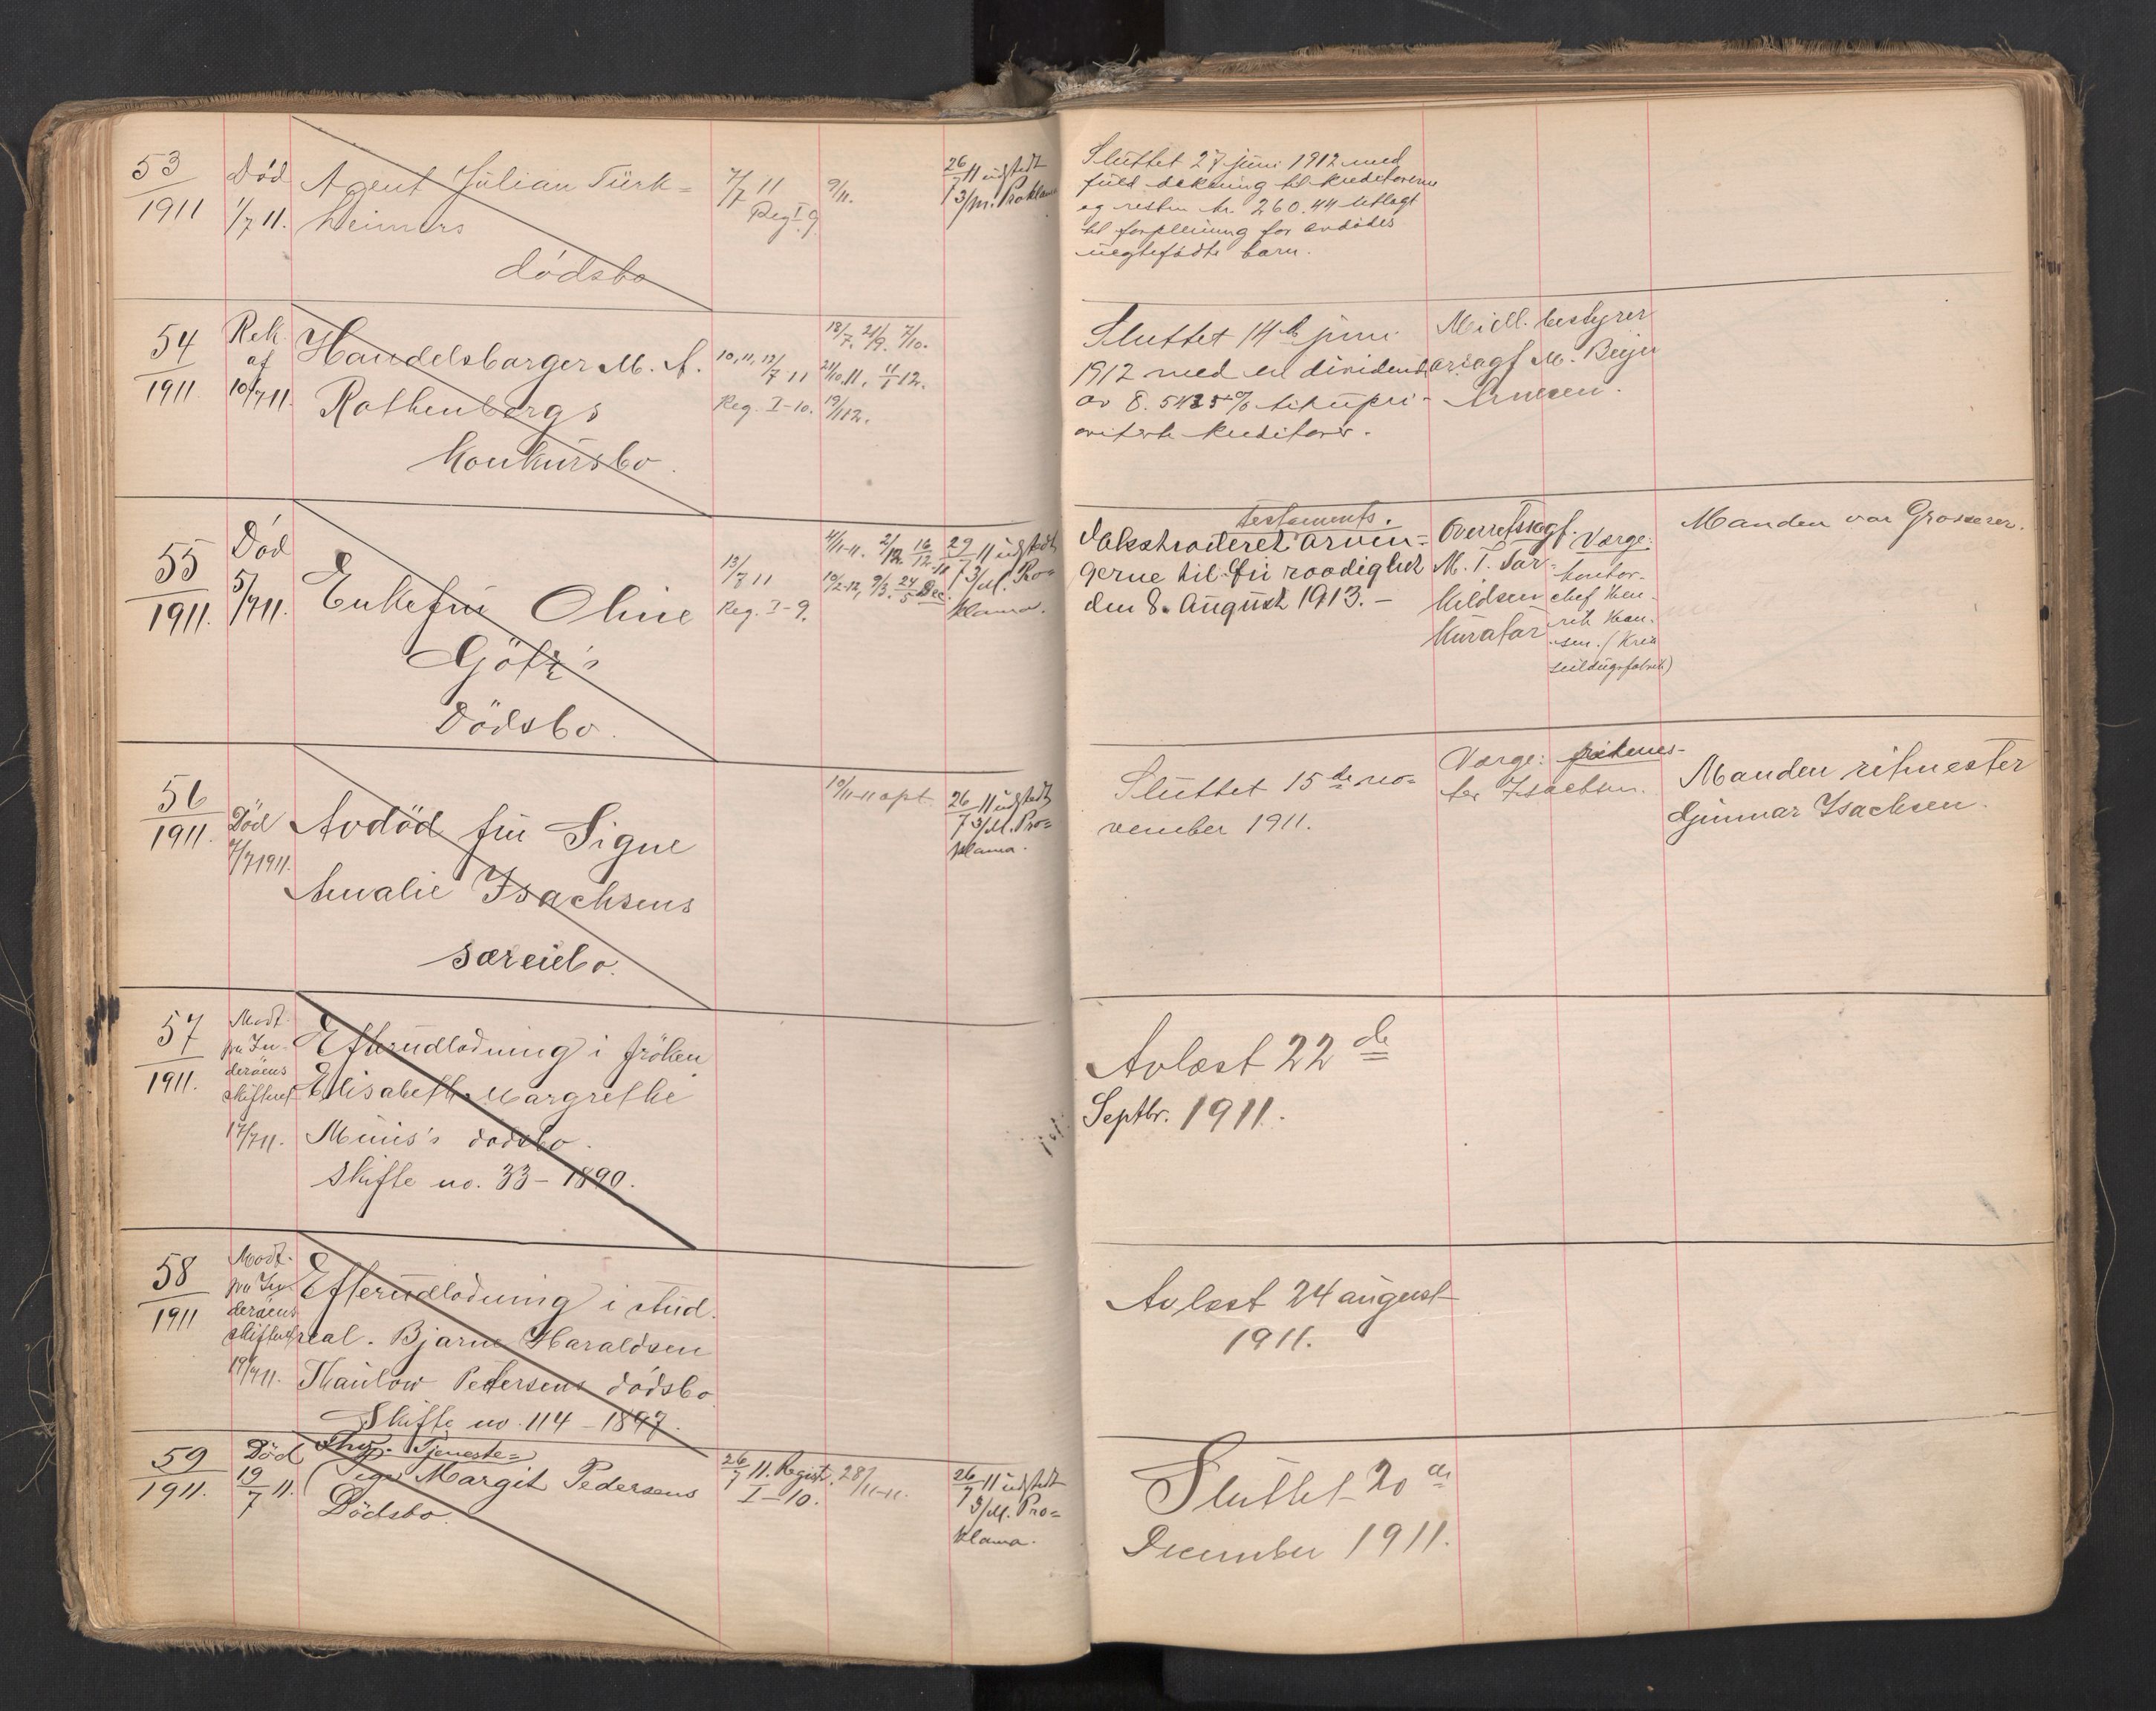 53
1911
Død
1/7 11.
Agent Julian Türk-
heimers
dødsbo
7/7 11
Reg I 9
9/11.
26/7 11 udstedt
3/m. Proklama
Sluttet 27 juni 1912 med
fuld dekning til kreditorerne
og resten kr. 260.44 utlagt
til forpleining for avdødes
uegtefødte barn.
54
1911
Rek.
af
10/7 11.
Handelsborger M. A.
Rothenbergs
konkursbo.
10, 11, 12/7 11
Reg. I-10.
18/7. 21/9. 7/10.
21/10 11. 11/1 12.
19/1 12.
Sluttet 14de juni
1912 med en dividende
av 8.5425% til upri-
oriterte kreditorer.
Midl. bestyrer
o.r.sagf. M. Beyer
Arnesen.
55
1911.
Død
5/7 11.
Enkefru Oline
Götz's
Dödsbo.
13/7 11
Reg. I-9.
4/11-11. 2/12. 16/12-11
10/2-12, 9/3. 24/5 Dec.
29/7 11 udstedt
3/M. Pro=
klama.
testaments.
Ekstraderet arvin=
gerne til fri raadighet
den 8. August 1913. -
Overretssagf.
M. T. Tar-
kildsen
Kurator
Værge:
kontor-
chef Hen-
rik Han-
sen. (Krist.
seildugsfabrik)
Manden var Grosserer.
56
1911.
Död
7/7 1911.
Avdöd fru Signe
Amalie Isachsens
særeiebo.
10/11-11 opt.
26/7 11 udstedt
3/M. Pro=
klama.
Sluttet 15de no=
vember 1911.
Værge: ritmes-
ter Isachsen.
Manden ritmester
Gunnar Isachsen.
57
1911.
Modt.
fra In-
derøens
skifteret
17/7 11.
Efterudlodning i frøken
Elisabeth Margrethe
Müus's dødsbo.
Skifte no. 33 - 1890.
Avlæst 22de
Septbr. 1911.
58
1911
Modt.
fra In-
derøens
skifteret
19/7 11.
Efterudlodning i stud.
real. Bjarne Haraldsen
Thaulow Petersens dødsbo
Skifte no. 114 - 1897.
Avlæst 24 august
1911.
59
1911.
Död
19/7 11.
Tjeneste=
pige Margit Pedersens
Dödsbo.
26/7 11. Registr.
I-10.
28/11-11.
26/7 11 udstedt
3/M. Pro=
klama.
Sluttet 20de
December 1911.